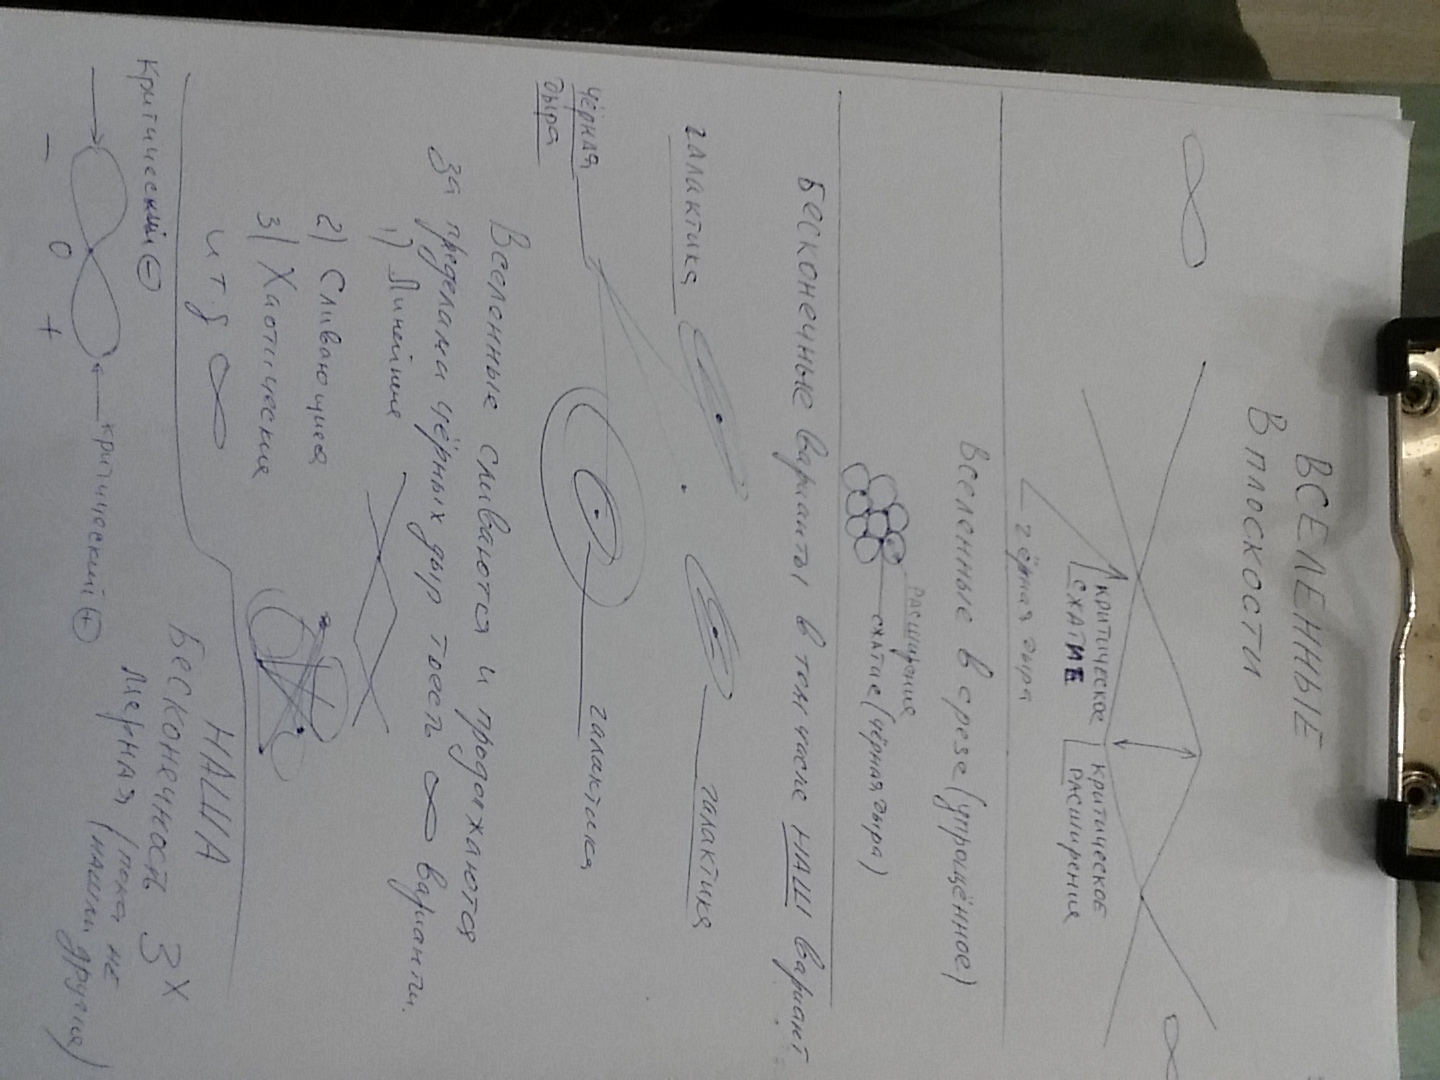 ВСЕЛЕННЫЕ
В ПЛОСКОСТИ
∞
∞
КРИТИЧЕСКОЕ
СЖАТИЕ
КРИТИЧЕСКОЕ
РАСШИРЕНИЯ
чёрная дыра
Вселенные в срезе (упрощённое)
РАСШИРЕНИЯ
сжатие (чёрная дыра)
Бесконечные варианты в том числе НАШ вариант
галактика
галактика
чёрная
дыра
галактика
Вселенные сливаются и продолжаются
За пределами чёрных дыр тоесть ∞ варианты.
1) Линейные
2) Сливающиеся
3) Хаотические
и т д ∞
НАША
Бесконечность 3х
Мерная (пока не
нашли другие)
Критический ⊖
− 0 +
критический ⊕